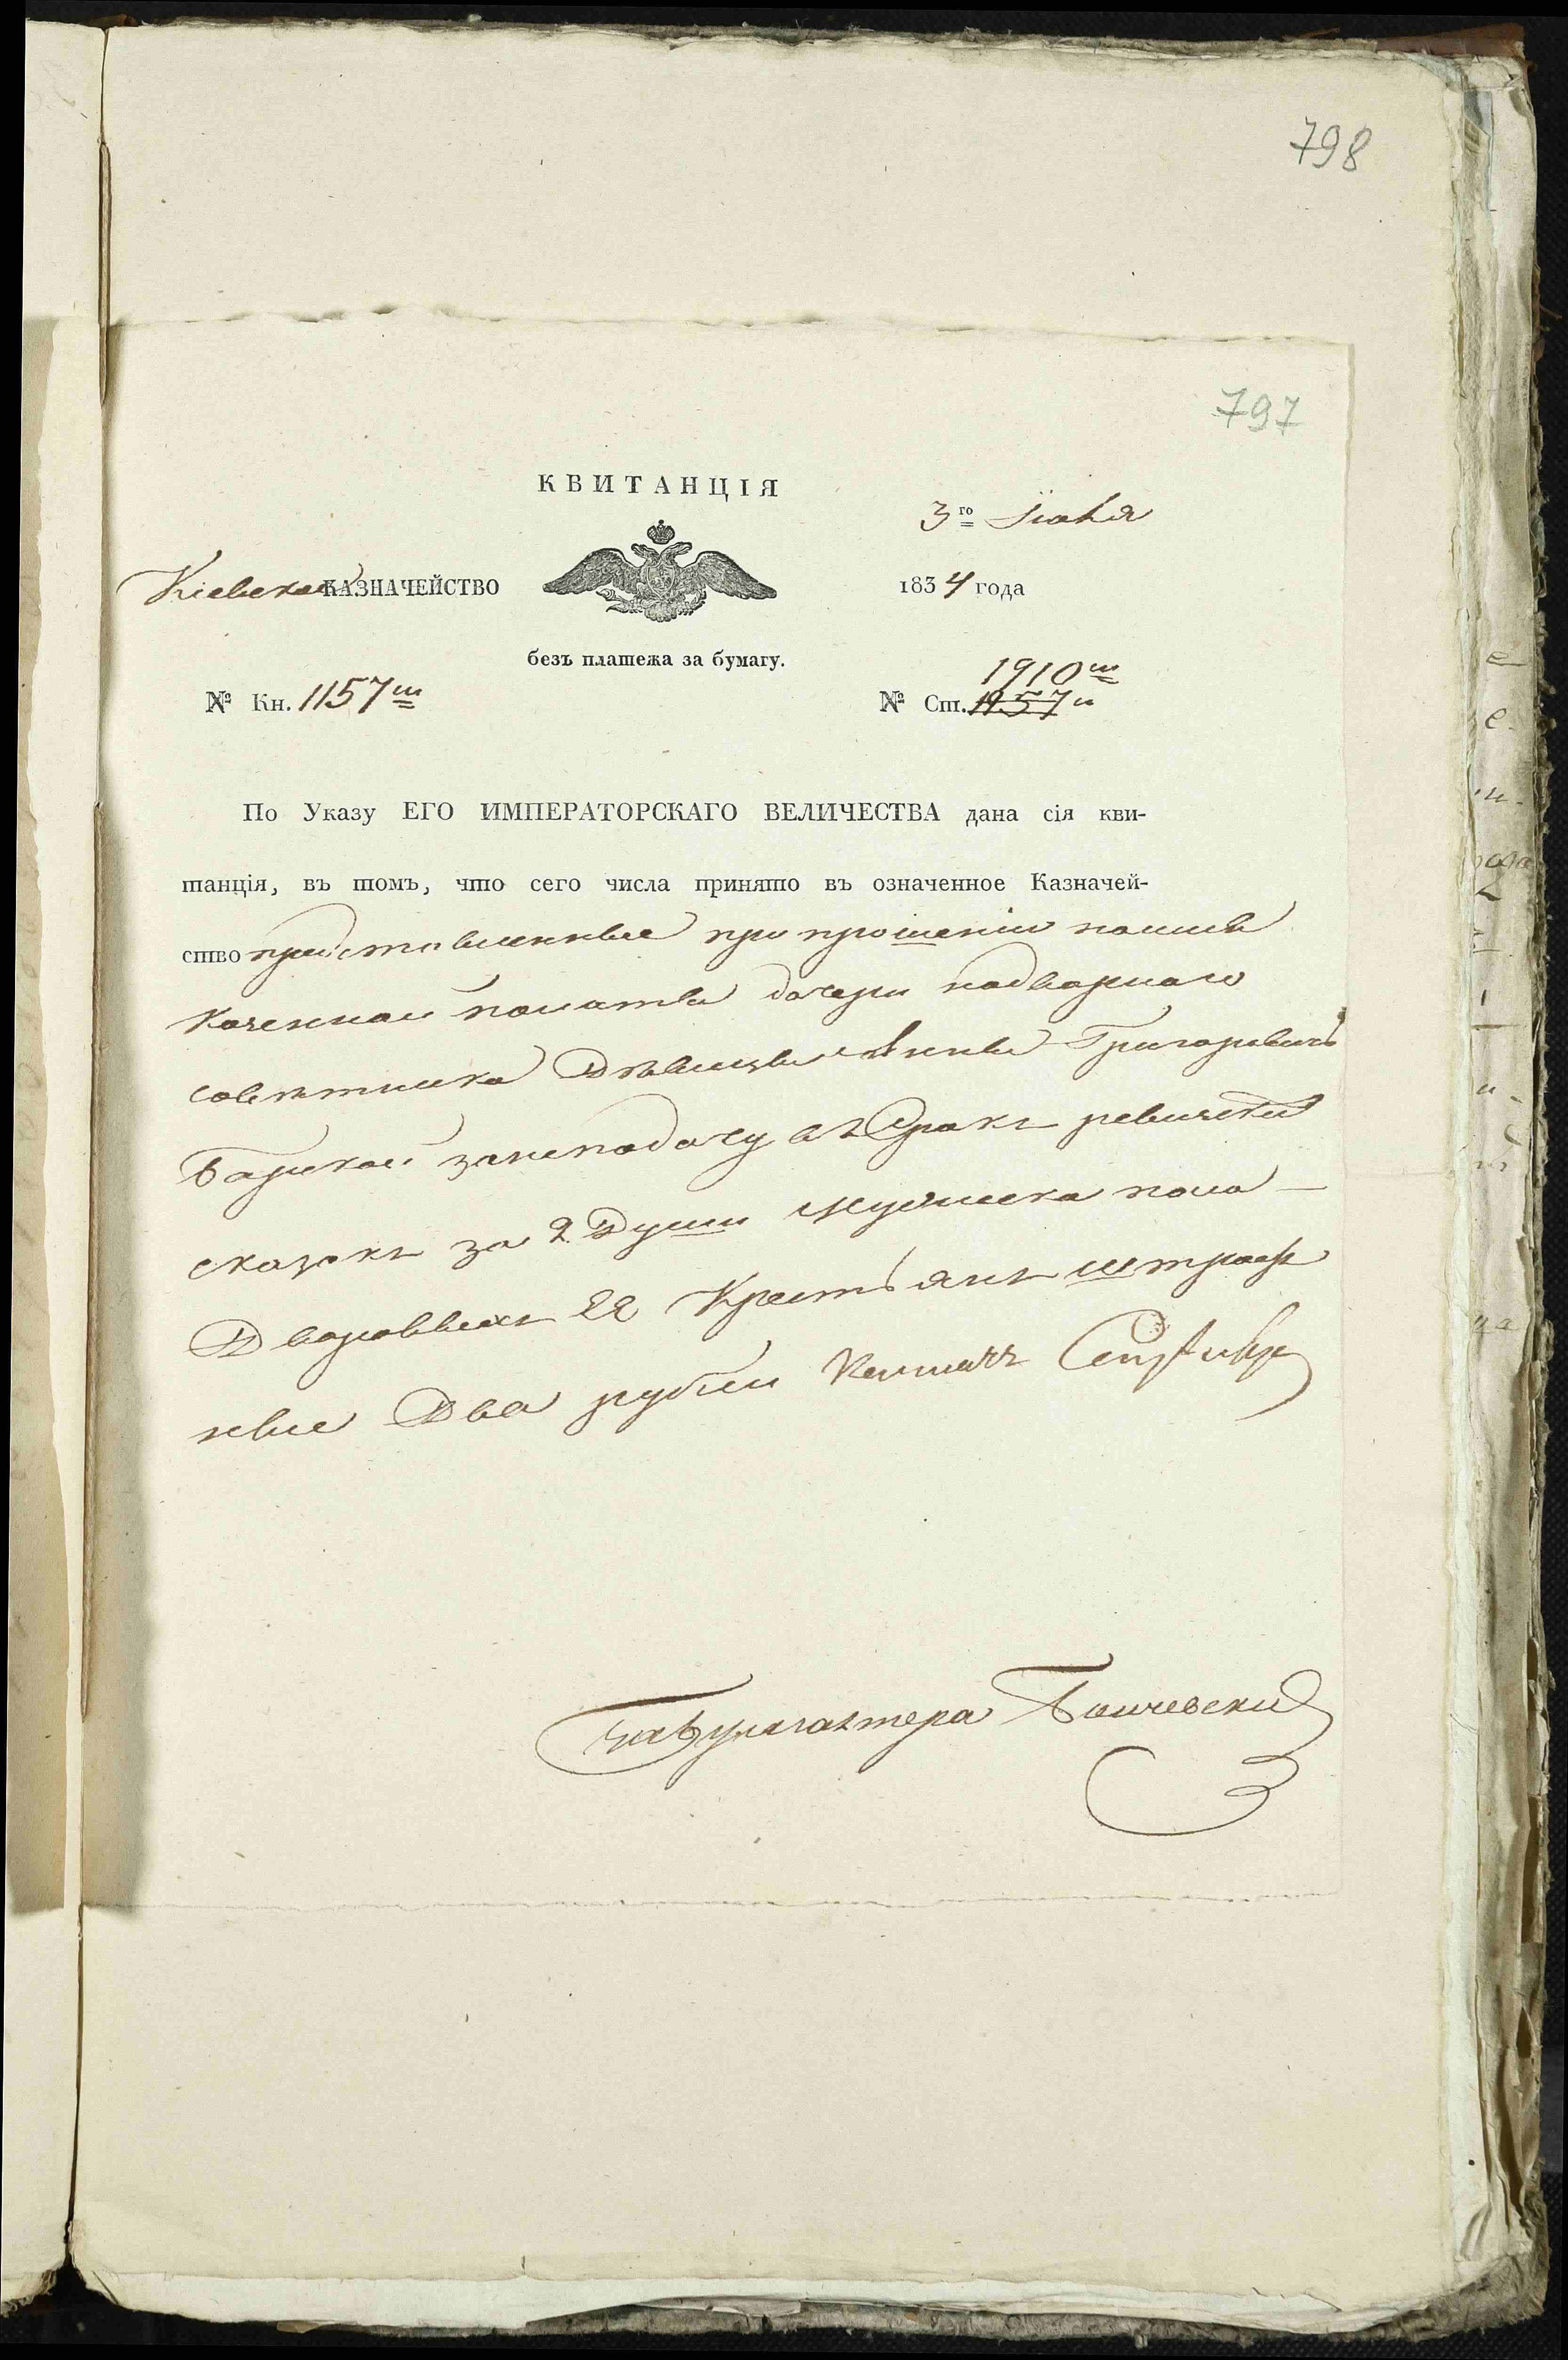 798
797
КВИТАНЦІЯ
3го Іюня
Кіевское КАЗНАЧЕЙСТВО
1834 года
безъ платежа за бумагу.
1910ш
№ Кн. 1157ш
№ Ст. 1957
По Указу ЕГО ИМПЕРАТОРСКАГО ВЕЛИЧЕСТВА дана сія кви-
танція, въ томъ, что сего числа принято въ означенное Казначей-
ство представленные при прошеніи
Казенной полаты дочери надворнаго
советника Девицы Анны Григорьевны
Барской занеподачу въ Срокъ ревизской
сказокъ за 2 Души мужеска пола
Дворовыхъ Крестьянъ штраф
ные Два рубли
Бухгалтера